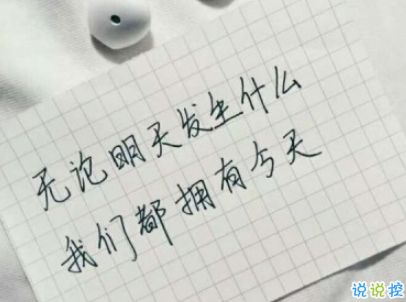 无论明天发生什么
我们都拥有今天
说说控